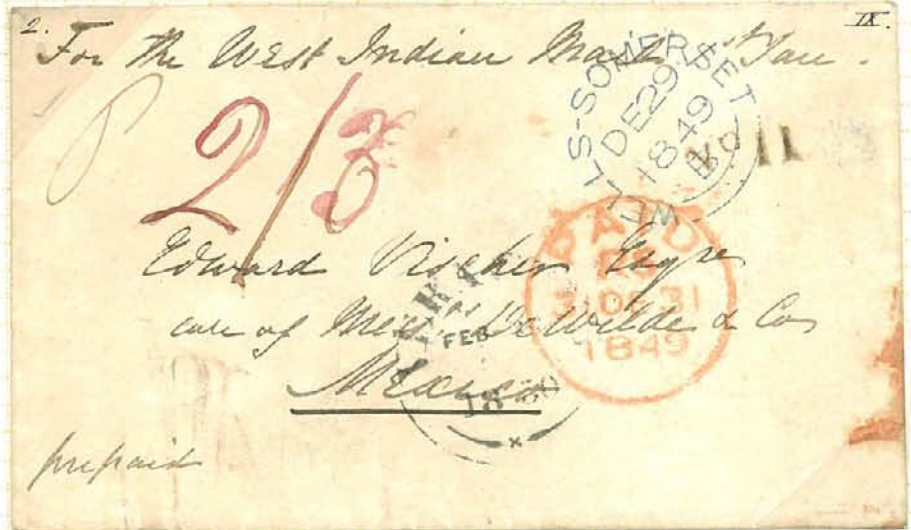 2.
IX.
For the West Indian Mail 1st Jan.
WELLS-SOMERSET
DE 29
1849
B
2/3
PAID
31 DE 31
1849
Edward Vischer Esqre
care of Messrs DeWilde & Co
FEB
Mexico
prepaid